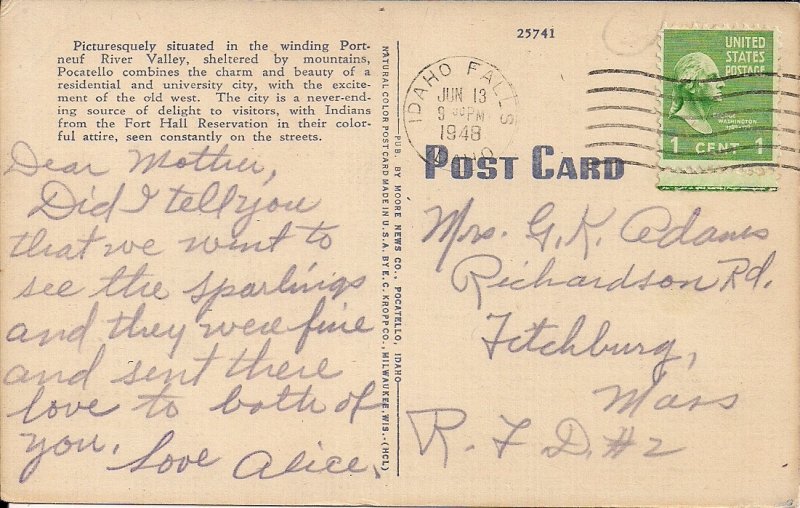 Picturesquely situated in the winding Port-
neuf River Valley, sheltered by mountains,
Pocatello combines the charm and beauty of a
residential and university city, with the excite-
ment of the old west. The city is a never-end-
ing source of delight to visitors, with Indians
from the Fort Hall Reservation in their color-
ful attire, seen constantly on the streets.
Dear Mother,
Did I tell you
that we went to
see the Sparlings
and they were fine
and sent there
love to both of
you.
Love Alice.
NATURAL COLOR POST CARD MADE IN U.S.A. BY E. C. KROPP CO., MILWAUKEE, WIS.-(HCL)
PUB. BY MOORE NEWS CO., POCATELLO, IDAHO
25741
IDAHO FALLS
JUN 13
9 PM
1948
IDAHO
POST CARD
UNITED
STATES
POSTAGE
GEORGE
WASHINGTON
1 CENT 1
Mrs. G. K. Adams
Richardson Rd.
Fitchburg,
Mass
R. F. D. #2